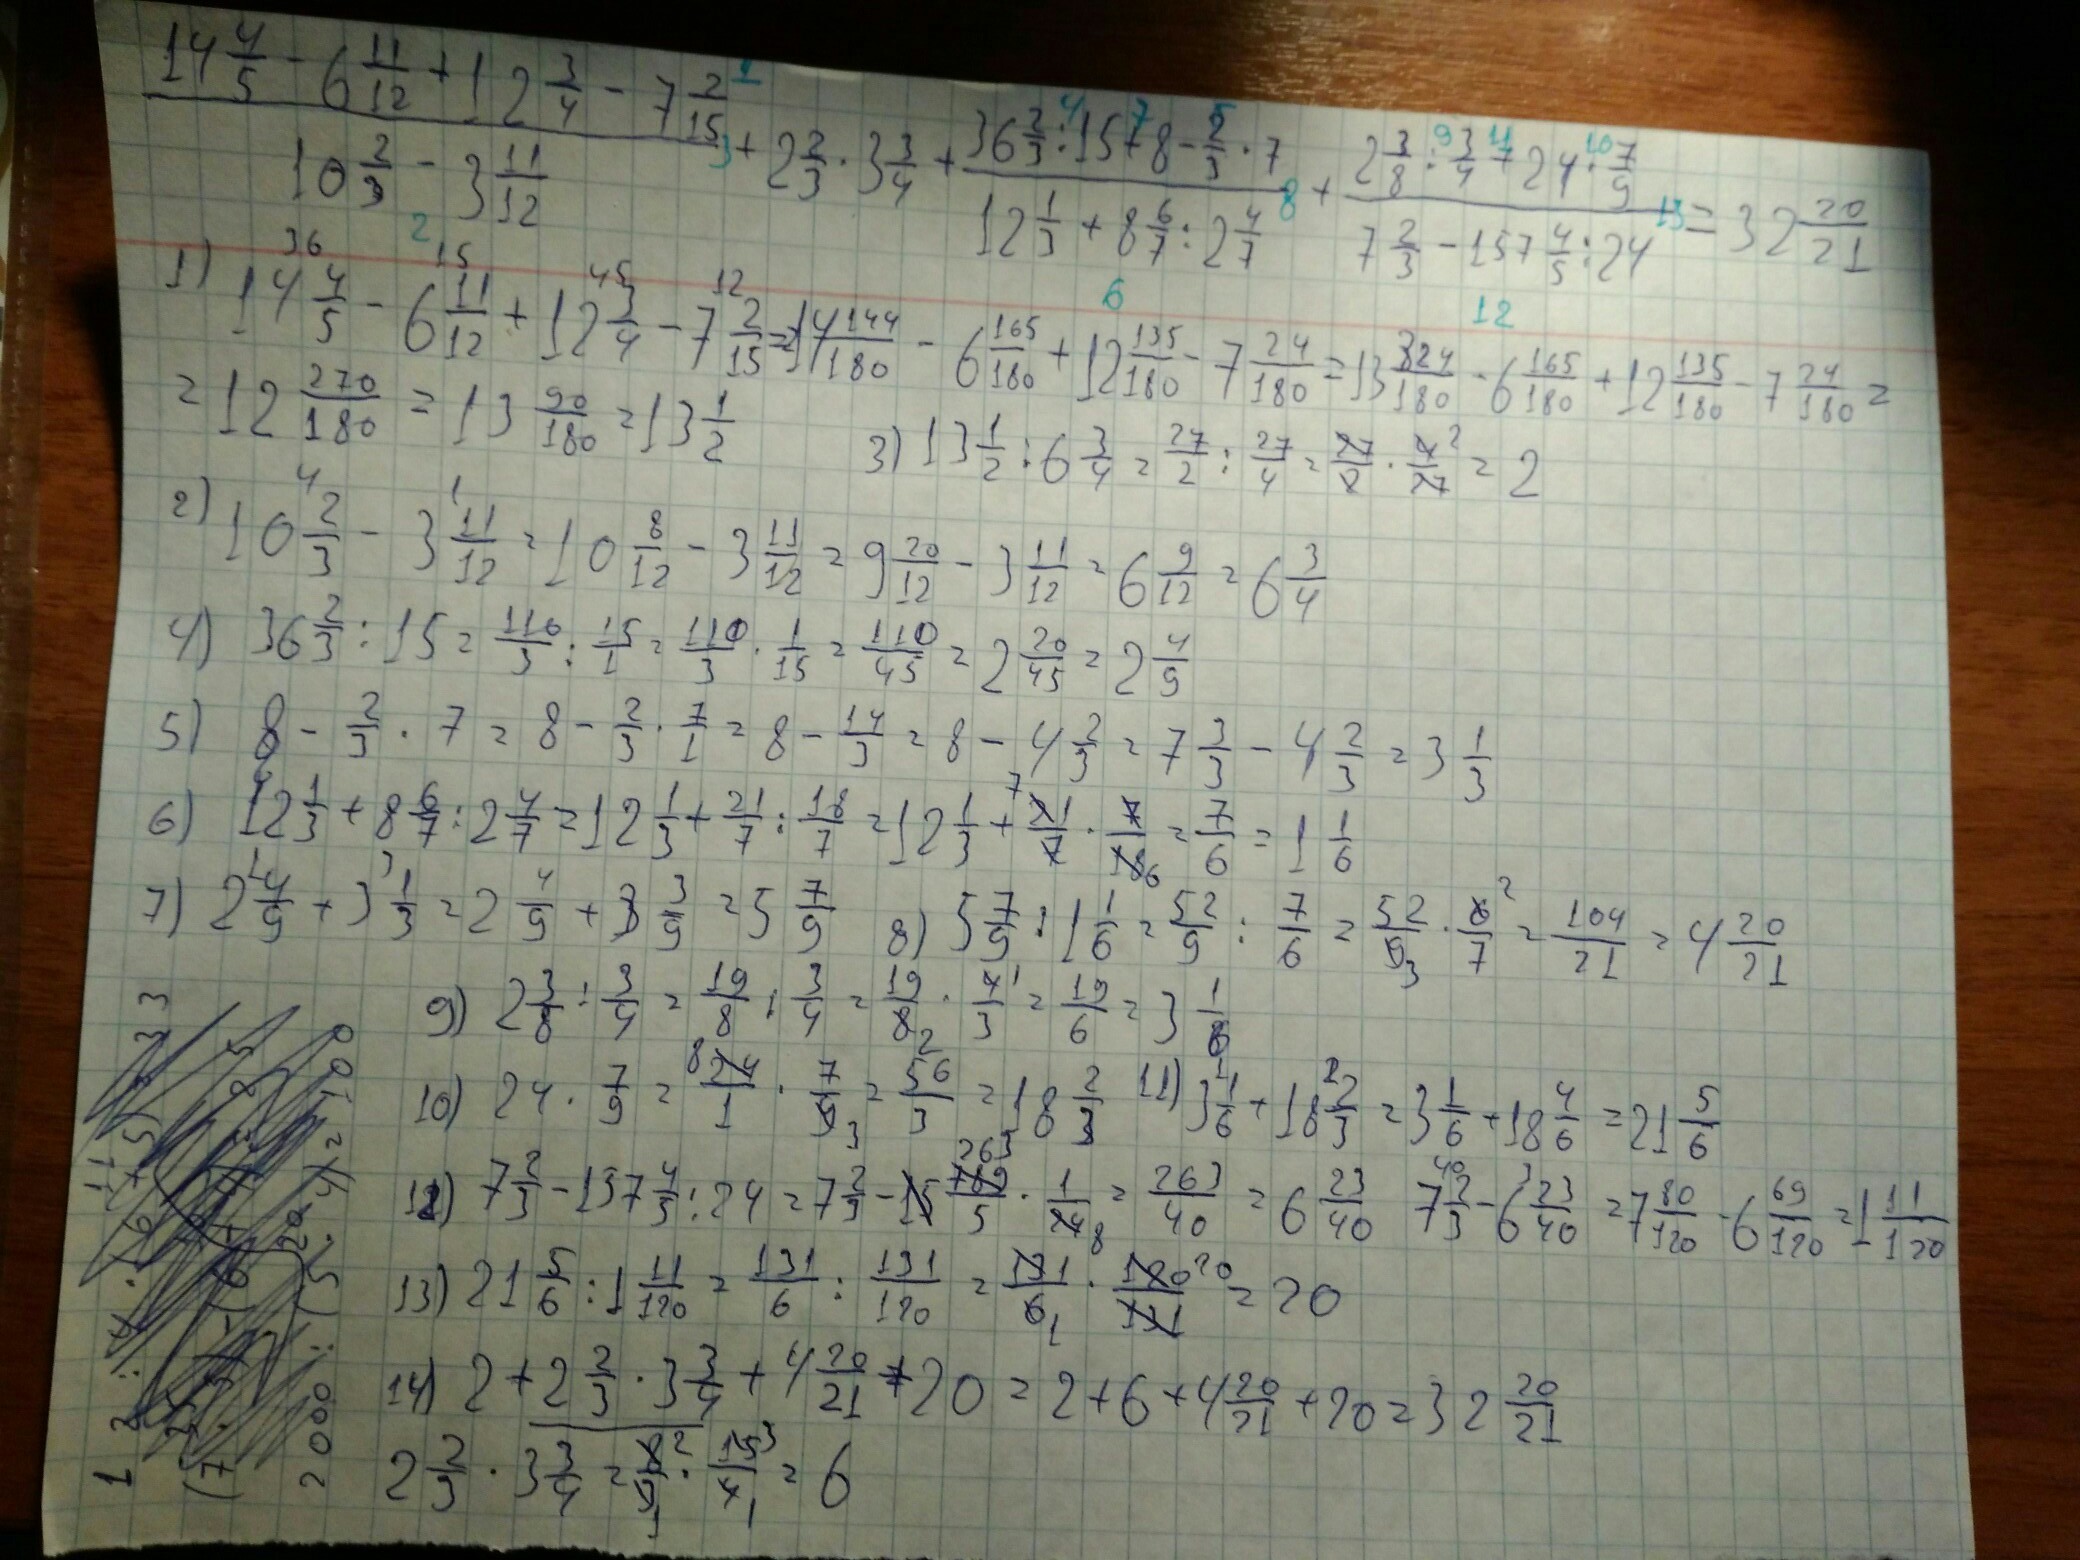 14 4/5 - 6 11/12 + 12 3/4 - 7 2/15 1
10 2/3 - 3 11/12
2
3 + 2 2/3 · 3 3/4 +
4 7 5
36 2/3 : 15 + 8 - 2/3 · 7
12 1/3 + 8 6/7 : 2 4/7
6
8 +
9 11 10
2 3/8 : 3/4 + 24 · 7/9
7 2/3 - 157 4/5 : 24
12
13 = 32 20/21
36 15 45 12
1) 14 4/5 - 6 11/12 + 12 3/4 - 7 2/15 = 14 144/180 - 6 165/180 + 12 135/180 - 7 24/180 = 13 324/180 - 6 165/180 + 12 135/180 - 7 24/180 =
= 12 270/180 = 13 90/180 = 13 1/2
3) 13 1/2 : 6 3/4 = 27/2 : 27/4 = 27/2 · 4/27 2 = 2
4 1
2) 10 2/3 - 3 11/12 = 10 8/12 - 3 11/12 = 9 20/12 - 3 11/12 = 6 9/12 = 6 3/4
4) 36 2/3 : 15 = 110/3 : 15/1 = 110/3 · 1/15 = 110/45 = 2 20/45 = 2 4/9
5) 8 - 2/3 · 7 = 8 - 2/3 · 7/1 = 8 - 14/3 = 8 - 4 2/3 = 7 3/3 - 4 2/3 = 3 1/3
6) 12 1/3 + 8 6/7 : 2 4/7 = 12 1/3 + 21/7 : 18/7 = 12 1/3 + 7 21/7 · 7/18 6 = 7/6 = 1 1/6
1 3
7) 2 4/9 + 3 1/3 = 2 4/9 + 3 3/9 = 5 7/9
8) 5 7/9 : 1 1/6 = 52/9 : 7/6 = 52/9 3 · 6/7 2 = 104/21 = 4 20/21
9) 2 3/8 : 3/4 = 19/8 : 3/4 = 19/8 2 · 4/3 1 = 19/6 = 3 1/6
10) 24 · 7/9 = 8 24/1 · 7/9 3 = 56/3 = 18 2/3
1 2
11) 3 1/6 + 18 2/3 = 3 1/6 + 18 4/6 = 21 5/6
12) 7 2/3 - 157 4/5 : 24 = 7 2/3 - 263 789/5 · 1/24 8 = 263/40 = 6 23/40
40 3
7 2/3 - 6 23/40 = 7 80/120 - 6 69/120 = 1 11/120
13) 21 5/6 : 1 11/120 = 131/6 : 131/120 = 131/6 1 · 120/131 20 = 20
14) 2 + 2 2/3 · 3 3/4 + 4 20/21 + 20 = 2 + 6 + 4 20/21 + 20 = 32 20/21
2 2/3 · 3 3/4 = 8/3 1 2 · 15/4 1 3 = 6